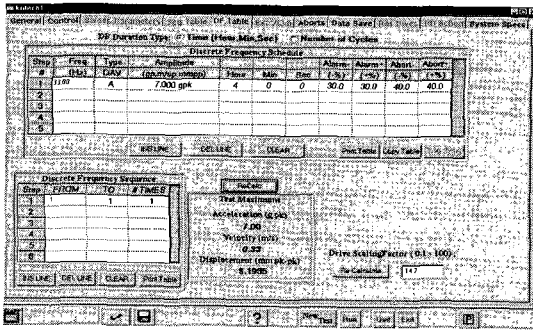 General Control DF Table Aborts Data Save System Specs
DF Duration Type: Time (Hour,Min,Sec) Number of Cycles
Discrete Frequency Schedule
Step Freq. Type Amplitude Alarm- Alarm+ Abort- Abort+
# (Hz) D/A/V (gpk,m/sp,mmpp) Hour Min Sec (-%) (+%) (-%) (+%)
1 1100 A 7.000 gpk 4 0 0 30.0 30.0 40.0 40.0
2
3
4
5
INS LINE DEL LINE CLEAR Print Table Copy Table
Discrete Frequency Sequence
Step FROM TO # TIMES
1 1 1 1
2
3
4
5
6
INS LINE DEL LINE CLEAR Print Table
Test Maximums
Acceleration (g pk)
7.00
Velocity (m/s)
Displacement (mm pk-pk)
Drive Scaling Factor ( 0.1 - 100)
Re-Calculate 14.7
? New Test Run Quit Exit